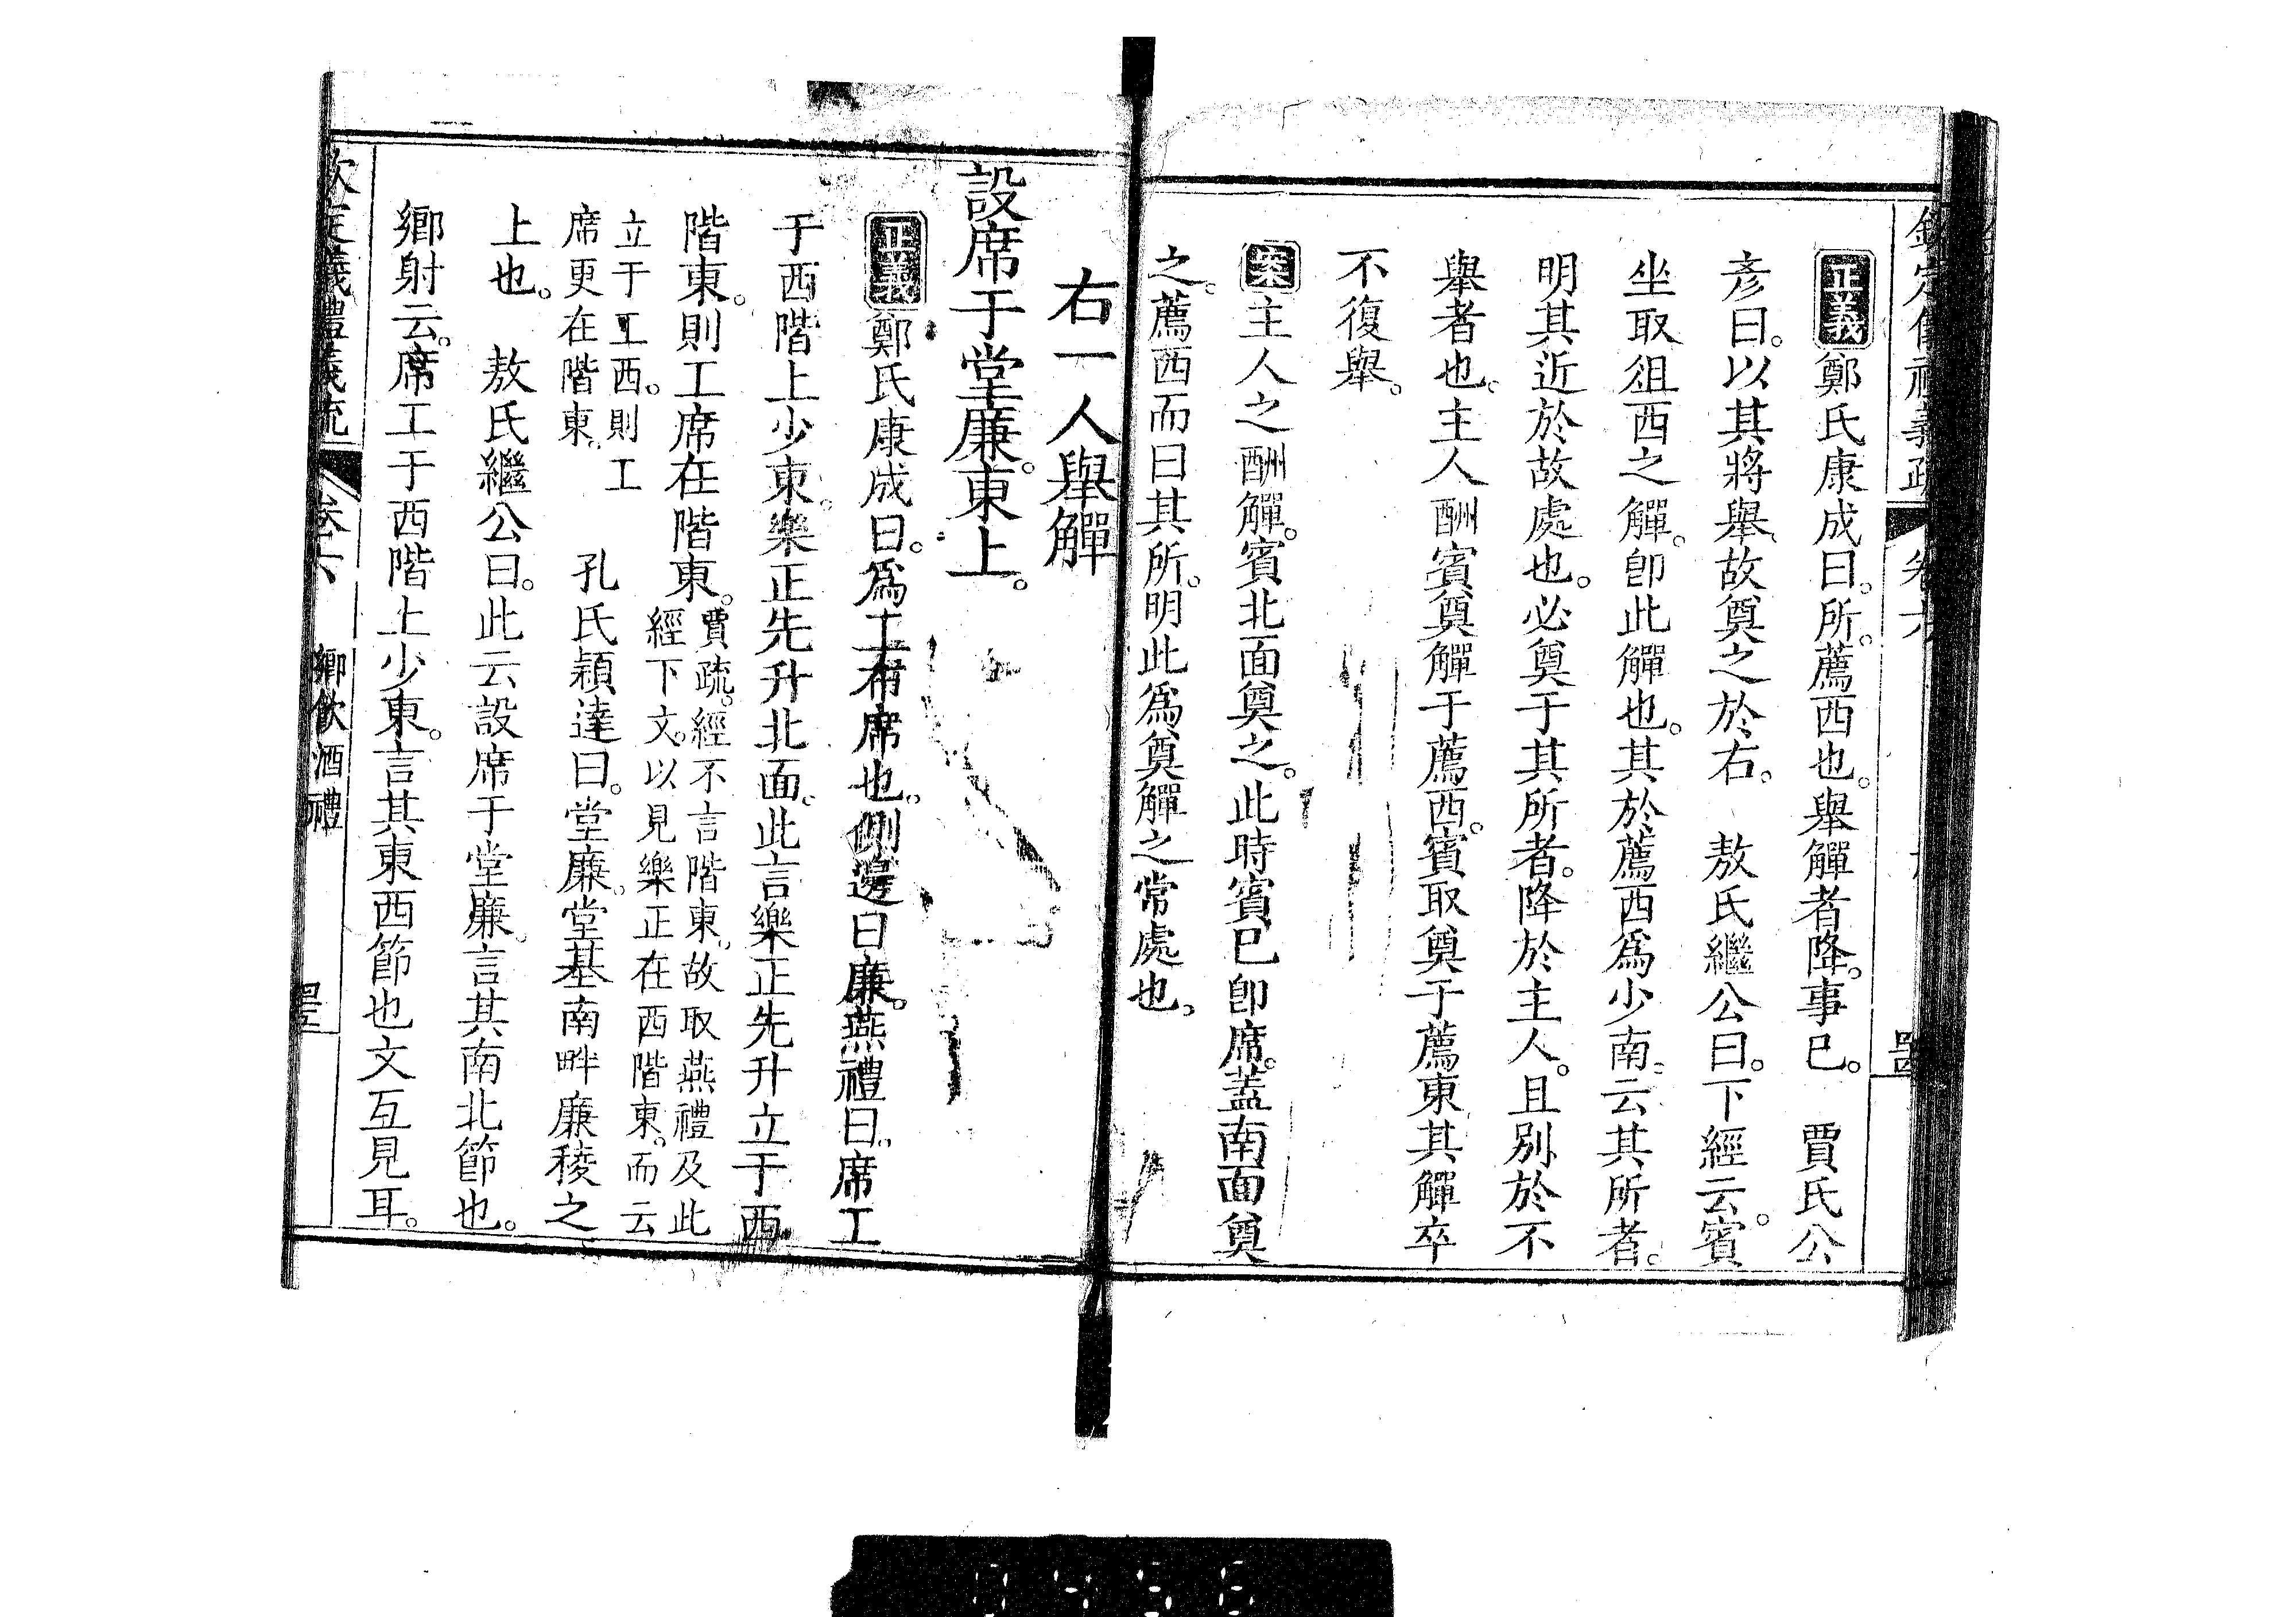 欽定儀禮義疏 卷六 罡
正義鄭氏康成曰。所。薦西也。舉觶者降。事已。 賈氏公
彥曰。以其將舉。故奠之於右。 敖氏繼公曰。下經云。賓
坐取俎西之觶。卽此觶也。其於薦西爲少南。云其所者。
明其近於故處也。必奠于其所者。降於主人。且別於不
舉者也。主人酬賓奠觶于薦西。賓取奠于薦東其觶卒
不復舉。
案主人之酬觶。賓北面奠之。此時賓已卽席。蓋南面奠
之。薦西而曰其所。明此爲奠觶之常處也。
右一人舉觶
設席于堂廉。東上。
正義鄭氏康成曰。爲工布席也。側邊曰廉。燕禮曰。席工
于西階上少東。樂正先升北面。此言樂正先升立于西
階東。則工席在階東。賈疏。經不言階東。故取燕禮及此
經下文。以見樂正在西階東。而云
立于工西。則工
席更在階東。 孔氏穎達曰。堂廉。堂基南畔廉稜之
上也。 敖氏繼公曰。此云設席于堂廉。言其南北節也。
鄉射云。席工于西階上少東。言其東西節也文互見耳。
欽定儀禮義疏 卷六 鄉飲酒禮